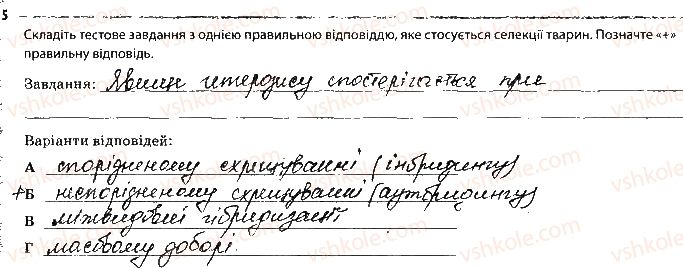 5
Складіть тестове завдання з однією правильною відповіддю, яке стосується селекції тварин. Позначте «+»
правильну відповідь.
Завдання: Явище гетерозису спостерігається при
Варіанти відповідей:
А спорідненому схрещуванні (інбридингу)
+Б неспорідненому схрещуванні (аутбридингу)
В міжвидовій гібридизації
Г масовому доборі.
vshkole.com